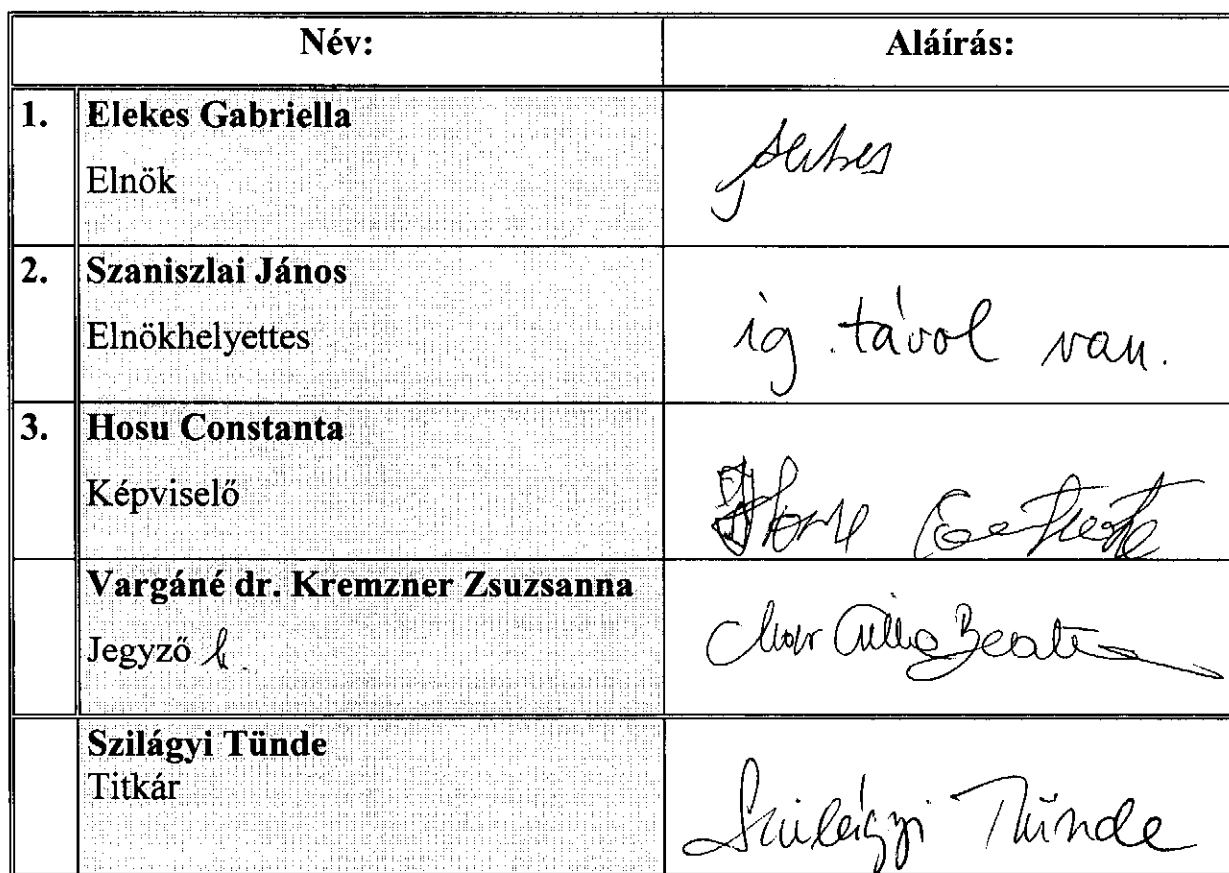 Név: Aláírás:
1. Elekes Gabriella
Elnök
2. Szaniszlai János
Elnökhelyettes
ig. távol van.
3. Hosu Constanta
Képviselő
Vargáné dr. Kremzner Zsuzsanna
Jegyző h.
Szilágyi Tünde
Titkár
Szilágyi Tünde